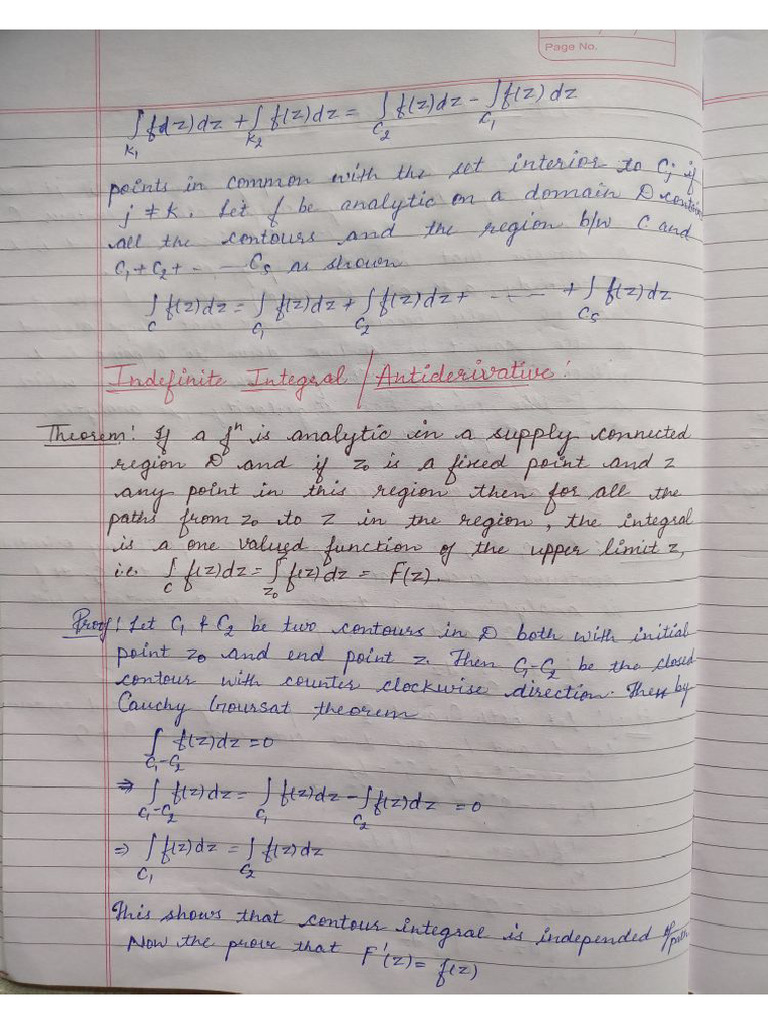 Page No.
∫_{K₁} f(z)dz + ∫_{K₂} f(z)dz = ∫_{C₂} f(z)dz - ∫_{C₁} f(z) dz
points in common with the set interior to Cⱼ if
j ≠ k. Let f be analytic on a domain D contain
all the contours and the region b/w C and
C₁+C₂+- - - C₅ as shown
∫_C f(z)dz = ∫_{C₁} f(z)dz + ∫_{C₂} f(z)dz + - - - - + ∫_{C₅} f(z)dz
Indefinite Integral / Antiderivative:
Theorem: If a fⁿ is analytic in a supply connected
region D and if z₀ is a fixed point and z
any point in this region then for all the
paths from z₀ to z in the region, the integral
is a one valued function of the upper limit z,
i.e. ∫_C f(z)dz = ∫_{z₀} f(z)dz = F(z).
Proof: Let C₁ & C₂ be two contours in D both with initial
point z₀ and end point z. Then C₁-C₂ be the closed
contour with counter clockwise direction. Then by
Cauchy Goursat theorem
∫_{C₁-C₂} f(z)dz = 0
⇒ ∫_{C₁-C₂} f(z)dz = ∫_{C₁} f(z)dz - ∫_{C₂} f(z)dz = 0
⇒ ∫_{C₁} f(z)dz = ∫_{C₂} f(z)dz
This shows that contour integral is independed of path
Now the prove that F'(z) = f(z)